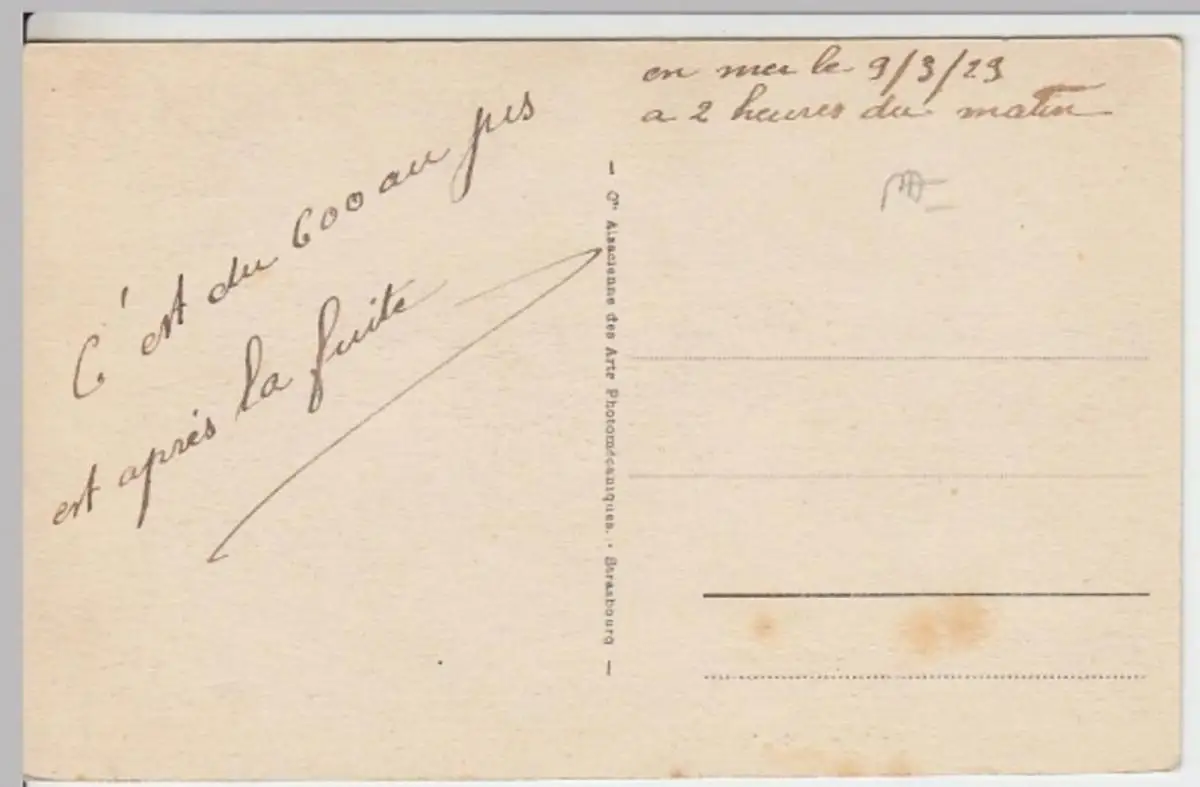 C'est du 600 au jus
est après la fuite
en mer le 9/3/29
a 2 heures du matin
— Cie Alsacienne des Arts Photomécaniques. - Strasbourg —